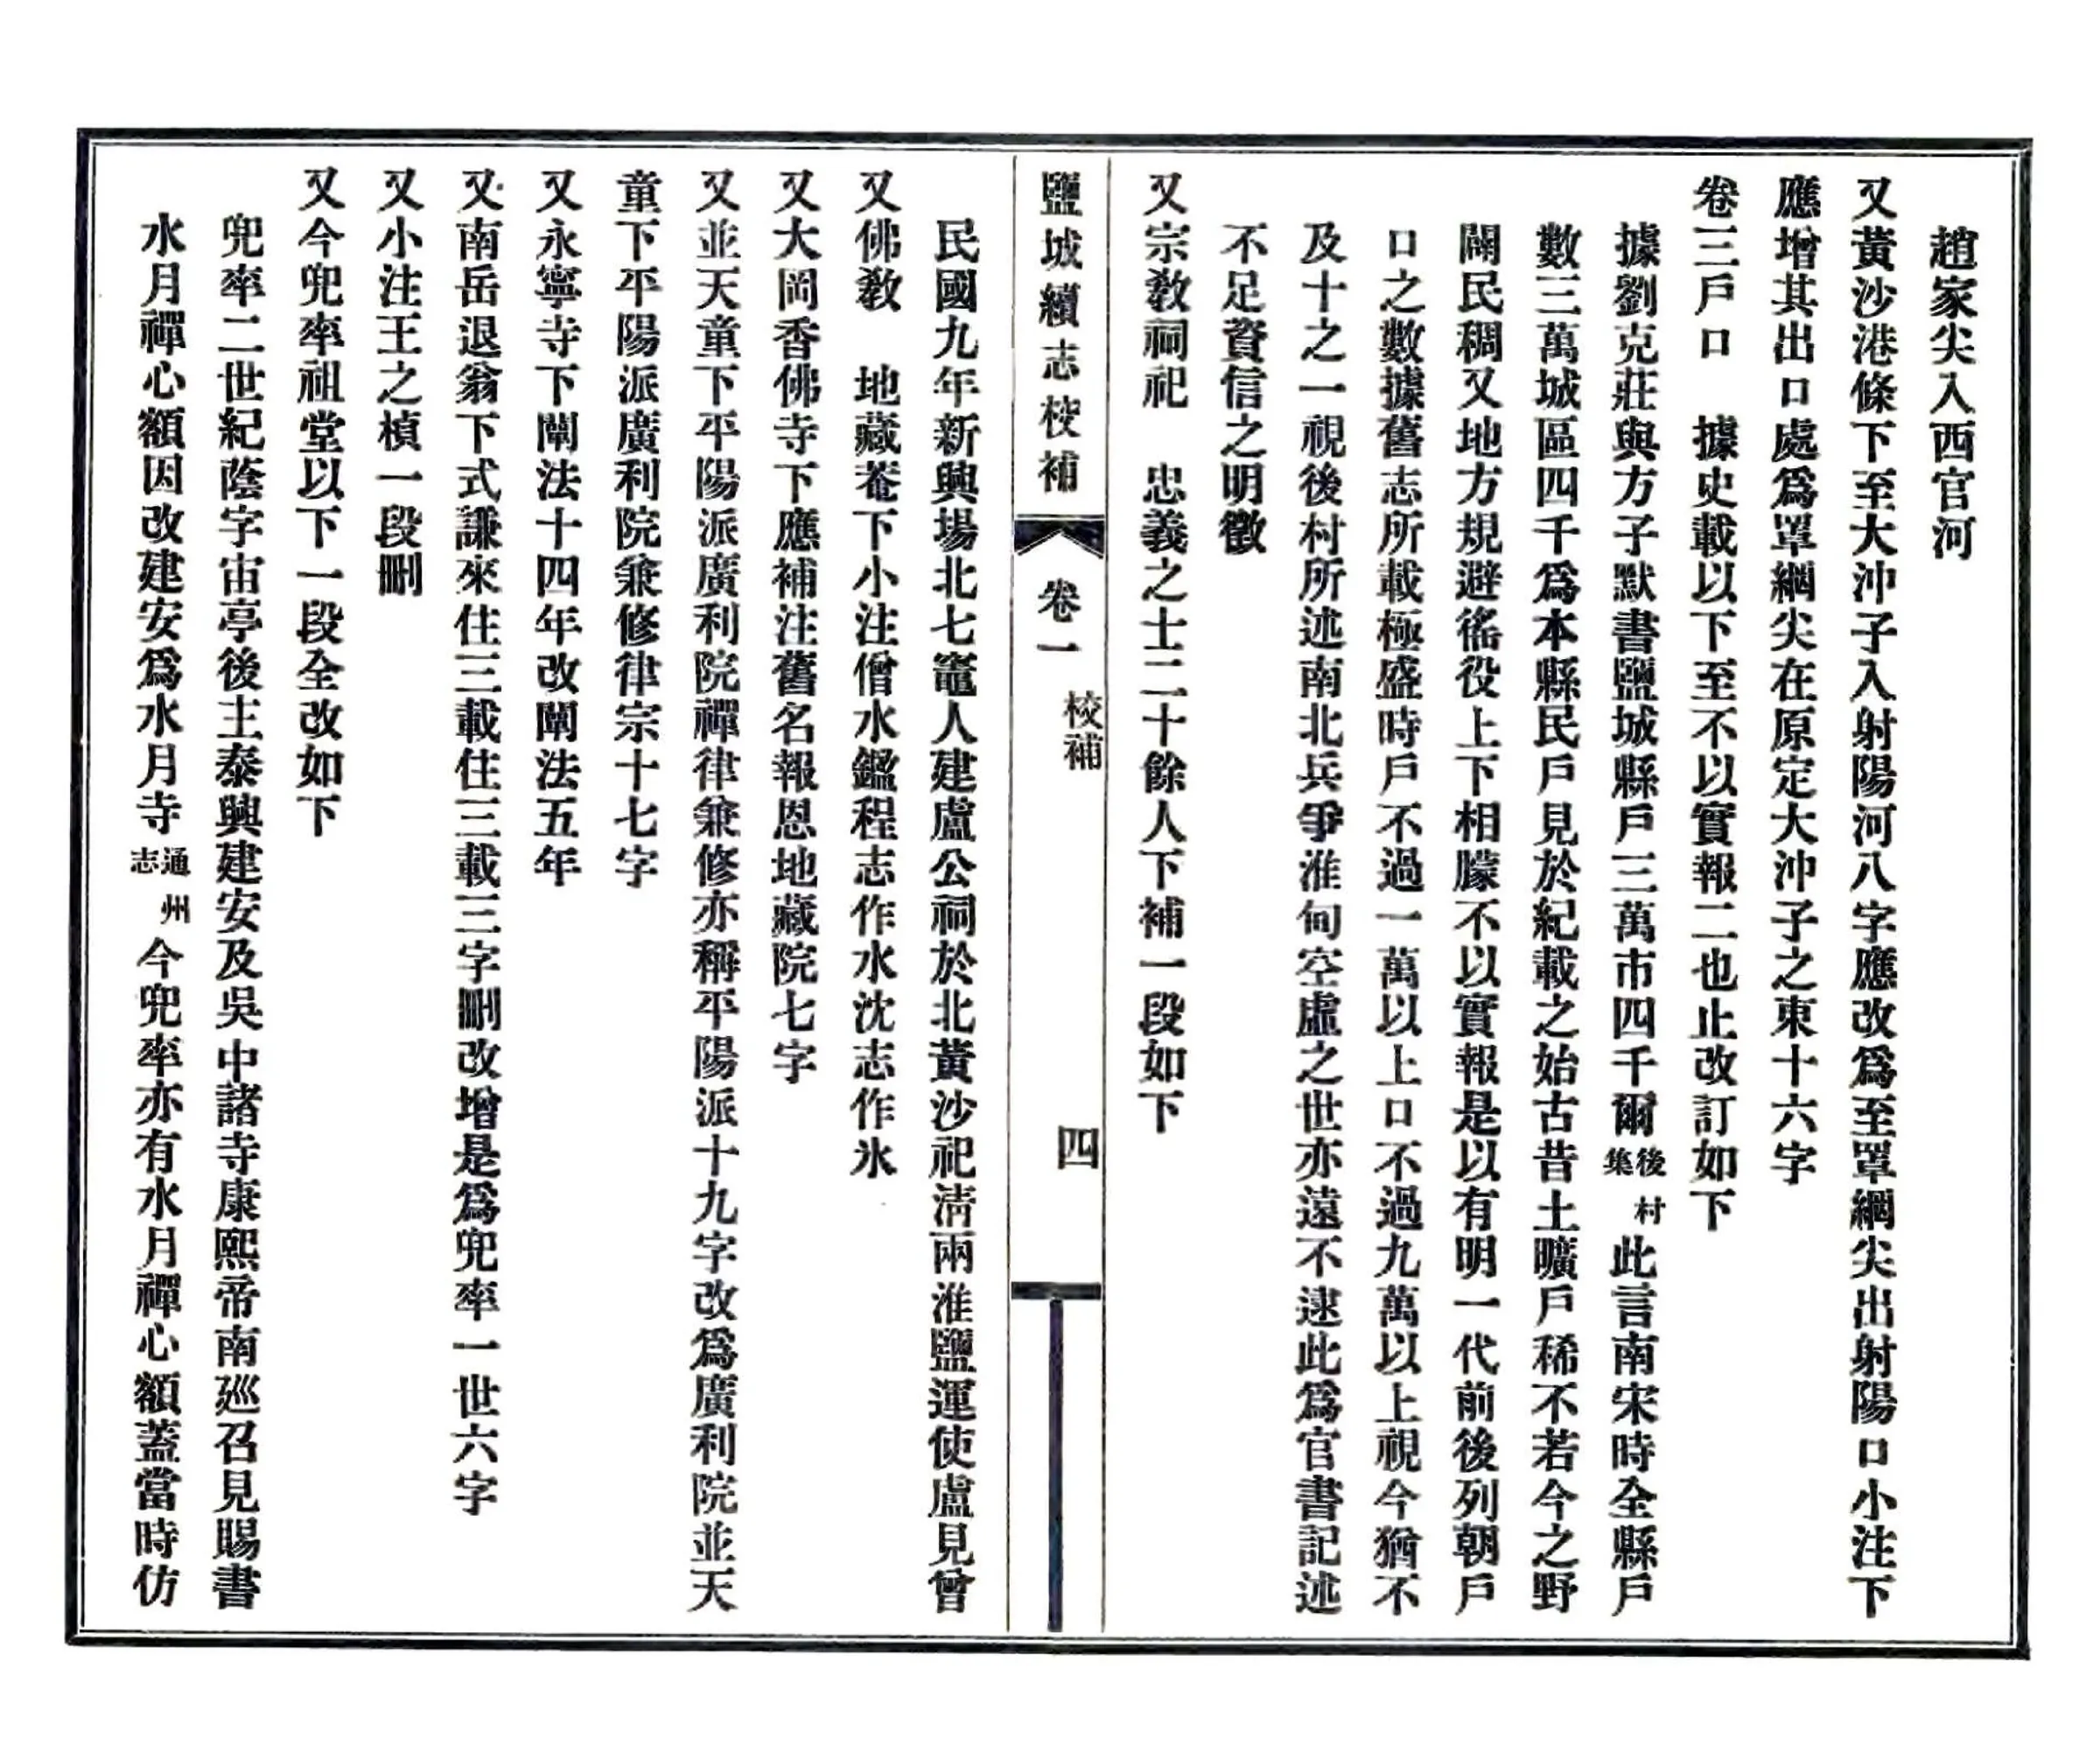 趙家尖入西官河
又黃沙港條下至大沖子入射陽河八字應改爲至罩網尖出射陽口小注下
應增其出口處爲罩網尖在原定大沖子之東十六字
卷三戶口　據史載以下至不以實報二也止改訂如下
據劉克莊與方子默書鹽城縣戶三萬市四千爾後村集此言南宋時全縣戶
數三萬城區四千爲本縣民戶見於紀載之始古昔土曠戶稀不若今之野
闢民稠又地方規避徭役上下相朦不以實報是以有明一代前後列朝戶
口之數據舊志所載極盛時戶不過一萬以上口不過九萬以上視今猶不
及十之一視後村所述南北兵爭淮甸空虛之世亦遠不逮此爲官書記述
不足資信之明徵
又宗敎祠祀　忠義之士二十餘人下補一段如下
鹽城續志校補　卷一　校補　四
民國九年新興場北七竈人建盧公祠於北黃沙祀淸兩淮鹽運使盧見曾
又佛敎　地藏菴下小注僧水鑑程志作水沈志作氷
又大岡香佛寺下應補注舊名報恩地藏院七字
又並天童下平陽派廣利院禪律兼修亦稱平陽派十九字改爲廣利院並天
童下平陽派廣利院兼修律宗十七字
又永寧寺下闡法十四年改闡法五年
又南岳退翁下式謙來住三載住三載三字刪改增是爲兜率一世六字
又小注王之楨一段刪
又今兜率祖堂以下一段全改如下
兜率二世紀蔭字宙亭後主泰興建安及吳中諸寺康熙帝南巡召見賜書
水月禪心額因改建安爲水月寺通州志今兜率亦有水月禪心額蓋當時仿